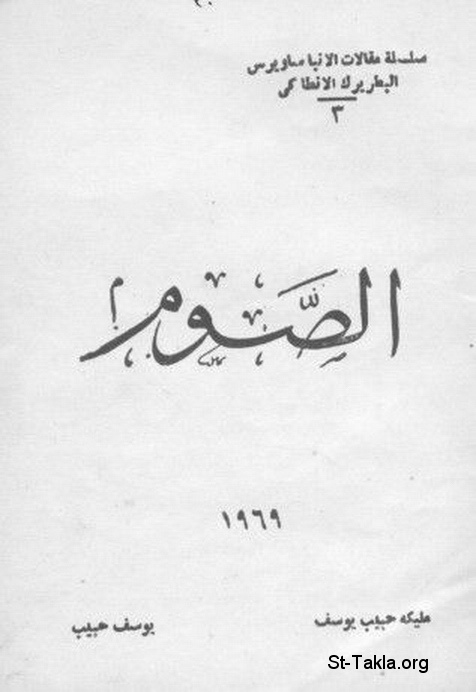 سلسلة مقالات الانبا ساويرس
البطريرك الانطاكى
٣
الصَّوم
١٩٦٩
مليكه حبيب يوسف
يوسف حبيب
St-Takla.org